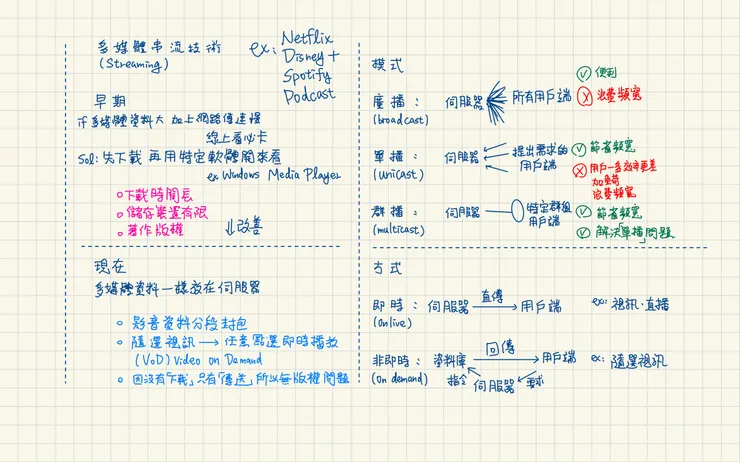 多媒體串流技術
(Streaming)
ex: Netflix
Disney+
Spotify
Podcast
早期
if 多媒體資料大 加上網路傳速慢
線上看必卡
Sol: 先下載 再用特定軟體開來看
ex. Windows Media Player
下載時間長
儲存裝置有限
著作版權
↓改善
現在
多媒體資料一樣放在伺服器
影音資料分段封包
隨選視訊 → 任意點選即時播放
(VoD) Video on Demand
因沒有「下載」只有「傳送」所以無版權問題
模式
廣播: 伺服器 所有用戶端
(broadcast)
便利
浪費頻寬
單播: 伺服器 提出需求的
(unicast) 用戶端
節省頻寬
用戶一多效率更差
加負荷
浪費頻寬
群播: 伺服器 特定群組
(multicast) 用戶端
節省頻寬
解決「單播」問題
方式
即時: 伺服器 直傳 → 用戶端 ex: 視訊、直播
(onlive)
非即時: 資料庫 回傳 → 用戶端 ex: 隨選視訊
(on demand) 指令 伺服器 要求